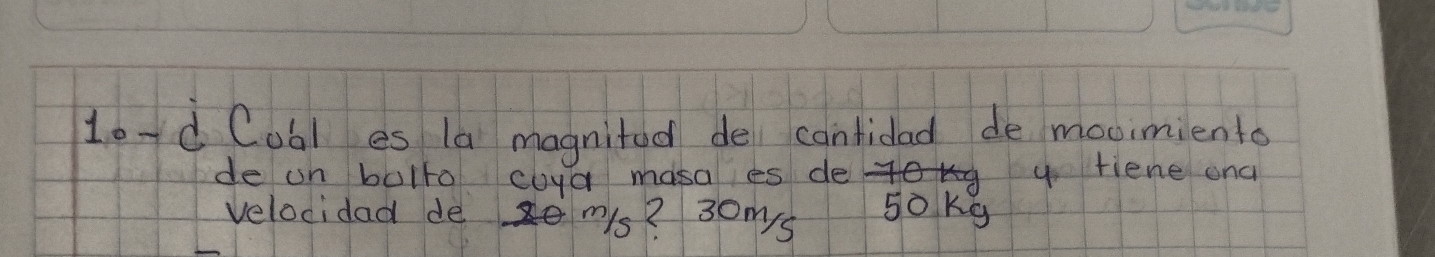 1.- ¿ Cual es la magnitud de cantidad de movimiento
de un bulto cuya masa es de 70 kg y tiene una
velocidad de 20 m/s? 30m/s 50 kg